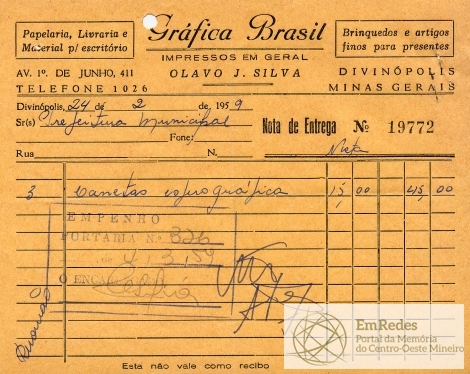 Papelaria, Livraria e
Material p/ escritório
Gráfica Brasil
IMPRESSOS EM GERAL
OLAVO J. SILVA
Brinquedos e artigos
finos para presentes
AV. 1º. DE JUNHO, 411
TELEFONE 1026
DIVINÓPOLIS
MINAS GERAIS
Divinópolis, 24 de 2 de 1959
Sr(s) Prefeitura Municipal
Fone:
Nota de Entrega Nº 19772
Rua N. Nesta
3 Canetas esferográfica 15,00 45,00
EMPENHO
PORTARIA N.º 326
de 4/3/59
O ENC.
Esta não vale como recibo
EmRedes
Portal da Memória
do Centro-Oeste Mineiro